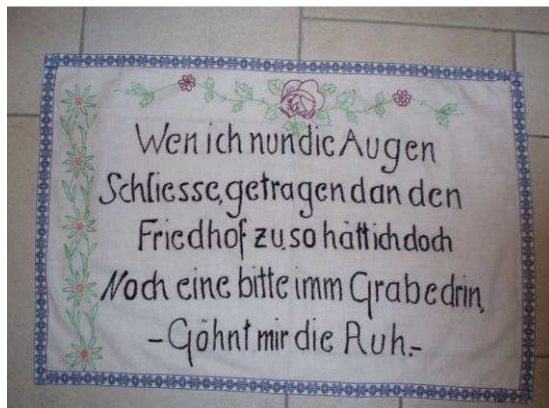 Wen ich nun die Augen
Schliesse, getragen dan den
Friedhof zu, so hätt ich doch
Noch eine bitte imm Grabe drin,
- Göhnt mir die Ruh. -